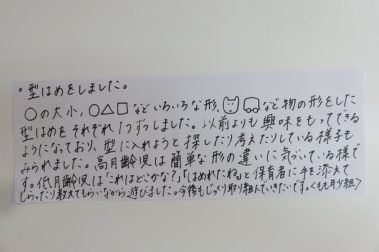 。型はめをしました。
○の大小、○△□などいろいろな形、などの物の形をした
型はめをそれぞれ1つずつしました。以前よりも興味をもってできる
ようになっており、型に入れようと探したり考えたりしている様子も
みられました。高月齢児は簡単な形の違いに気づいている様で
す。低月齢児は「これはどこかな?」「はめれたね。」と保育者に手を添えて
もらったり教えてもらいながら遊びました。今後もじっくり取り組んでいきたいです。くもも年少組>